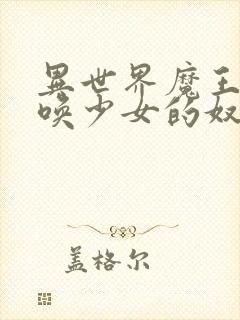 異世界魔王
喚少女的奴
盖格尔